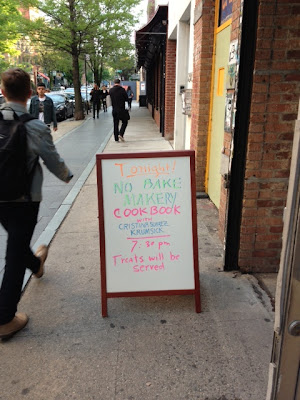 Tonight!
NO BAKE
MAKERY
COOKBOOK
WITH
CRISTINA SUAREZ
KRUMSICK
7:30 pm
Treats will be
served